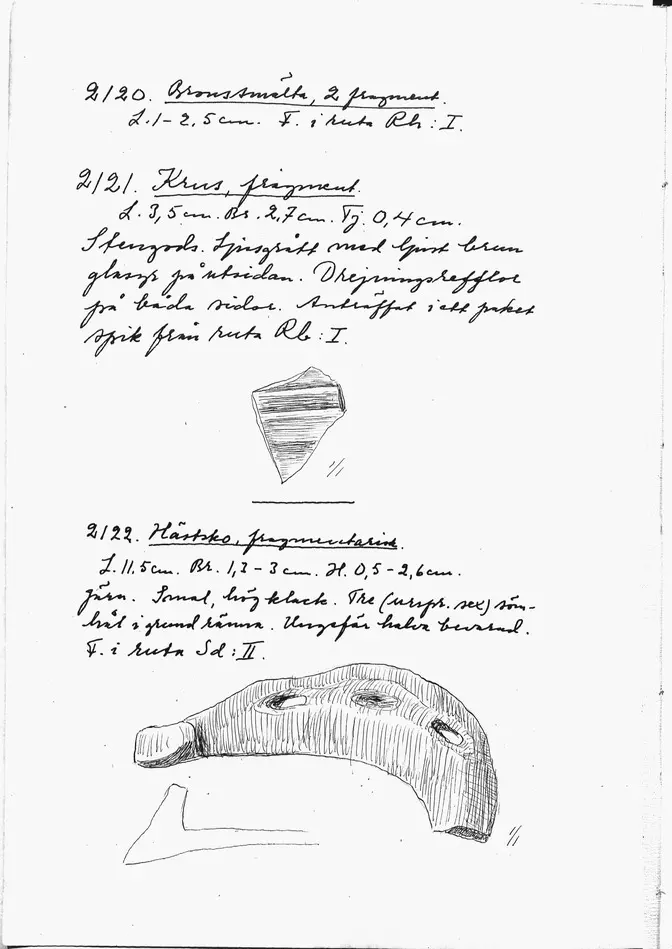 2120. Bronssmälta, 2 fragment.
L. 1-2,5 cm. F. i ruta Rb: I.
2121. Krus, fragment.
L. 3,5 cm. Br. 2,7 cm. Tj. 0,4 cm.
Stengods. Ljusgrått med ljust brun
glasyr på utsidan. Drejningsrefflor
på båda sidor. Anträffat i ett paket
spik från ruta Rb: I.
1/1
2122. Hästsko, fragmentarisk.
L. 11,5 cm. Br. 1,3-3 cm. H. 0,5-2,6 cm.
Järn. Smal, hög klack. Tre (urspr. sex) söm-
hål i grund ränna. Ungefär halva bevarad.
F. i ruta Sd: II.
1/1